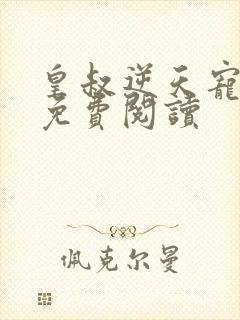 皇叔逆天寵
免費閱讀
佩克尔曼